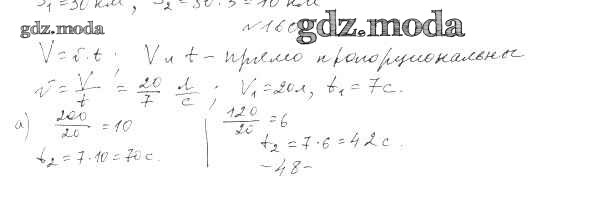 S₁ = 30 км, S₂ = 30 : 3 = 10 км
gdz.moda
№166
gdz.moda
V = v · t; V и t – прямо пропорциональны
v = V/t = 20/7 л/с; V₁ = 20 л, t₁ = 7 с.
а) 200/20 = 10
t₂ = 7 · 10 = 70 с.
120/20 = 6
t₂ = 7 · 6 = 42 с.
– 48 –